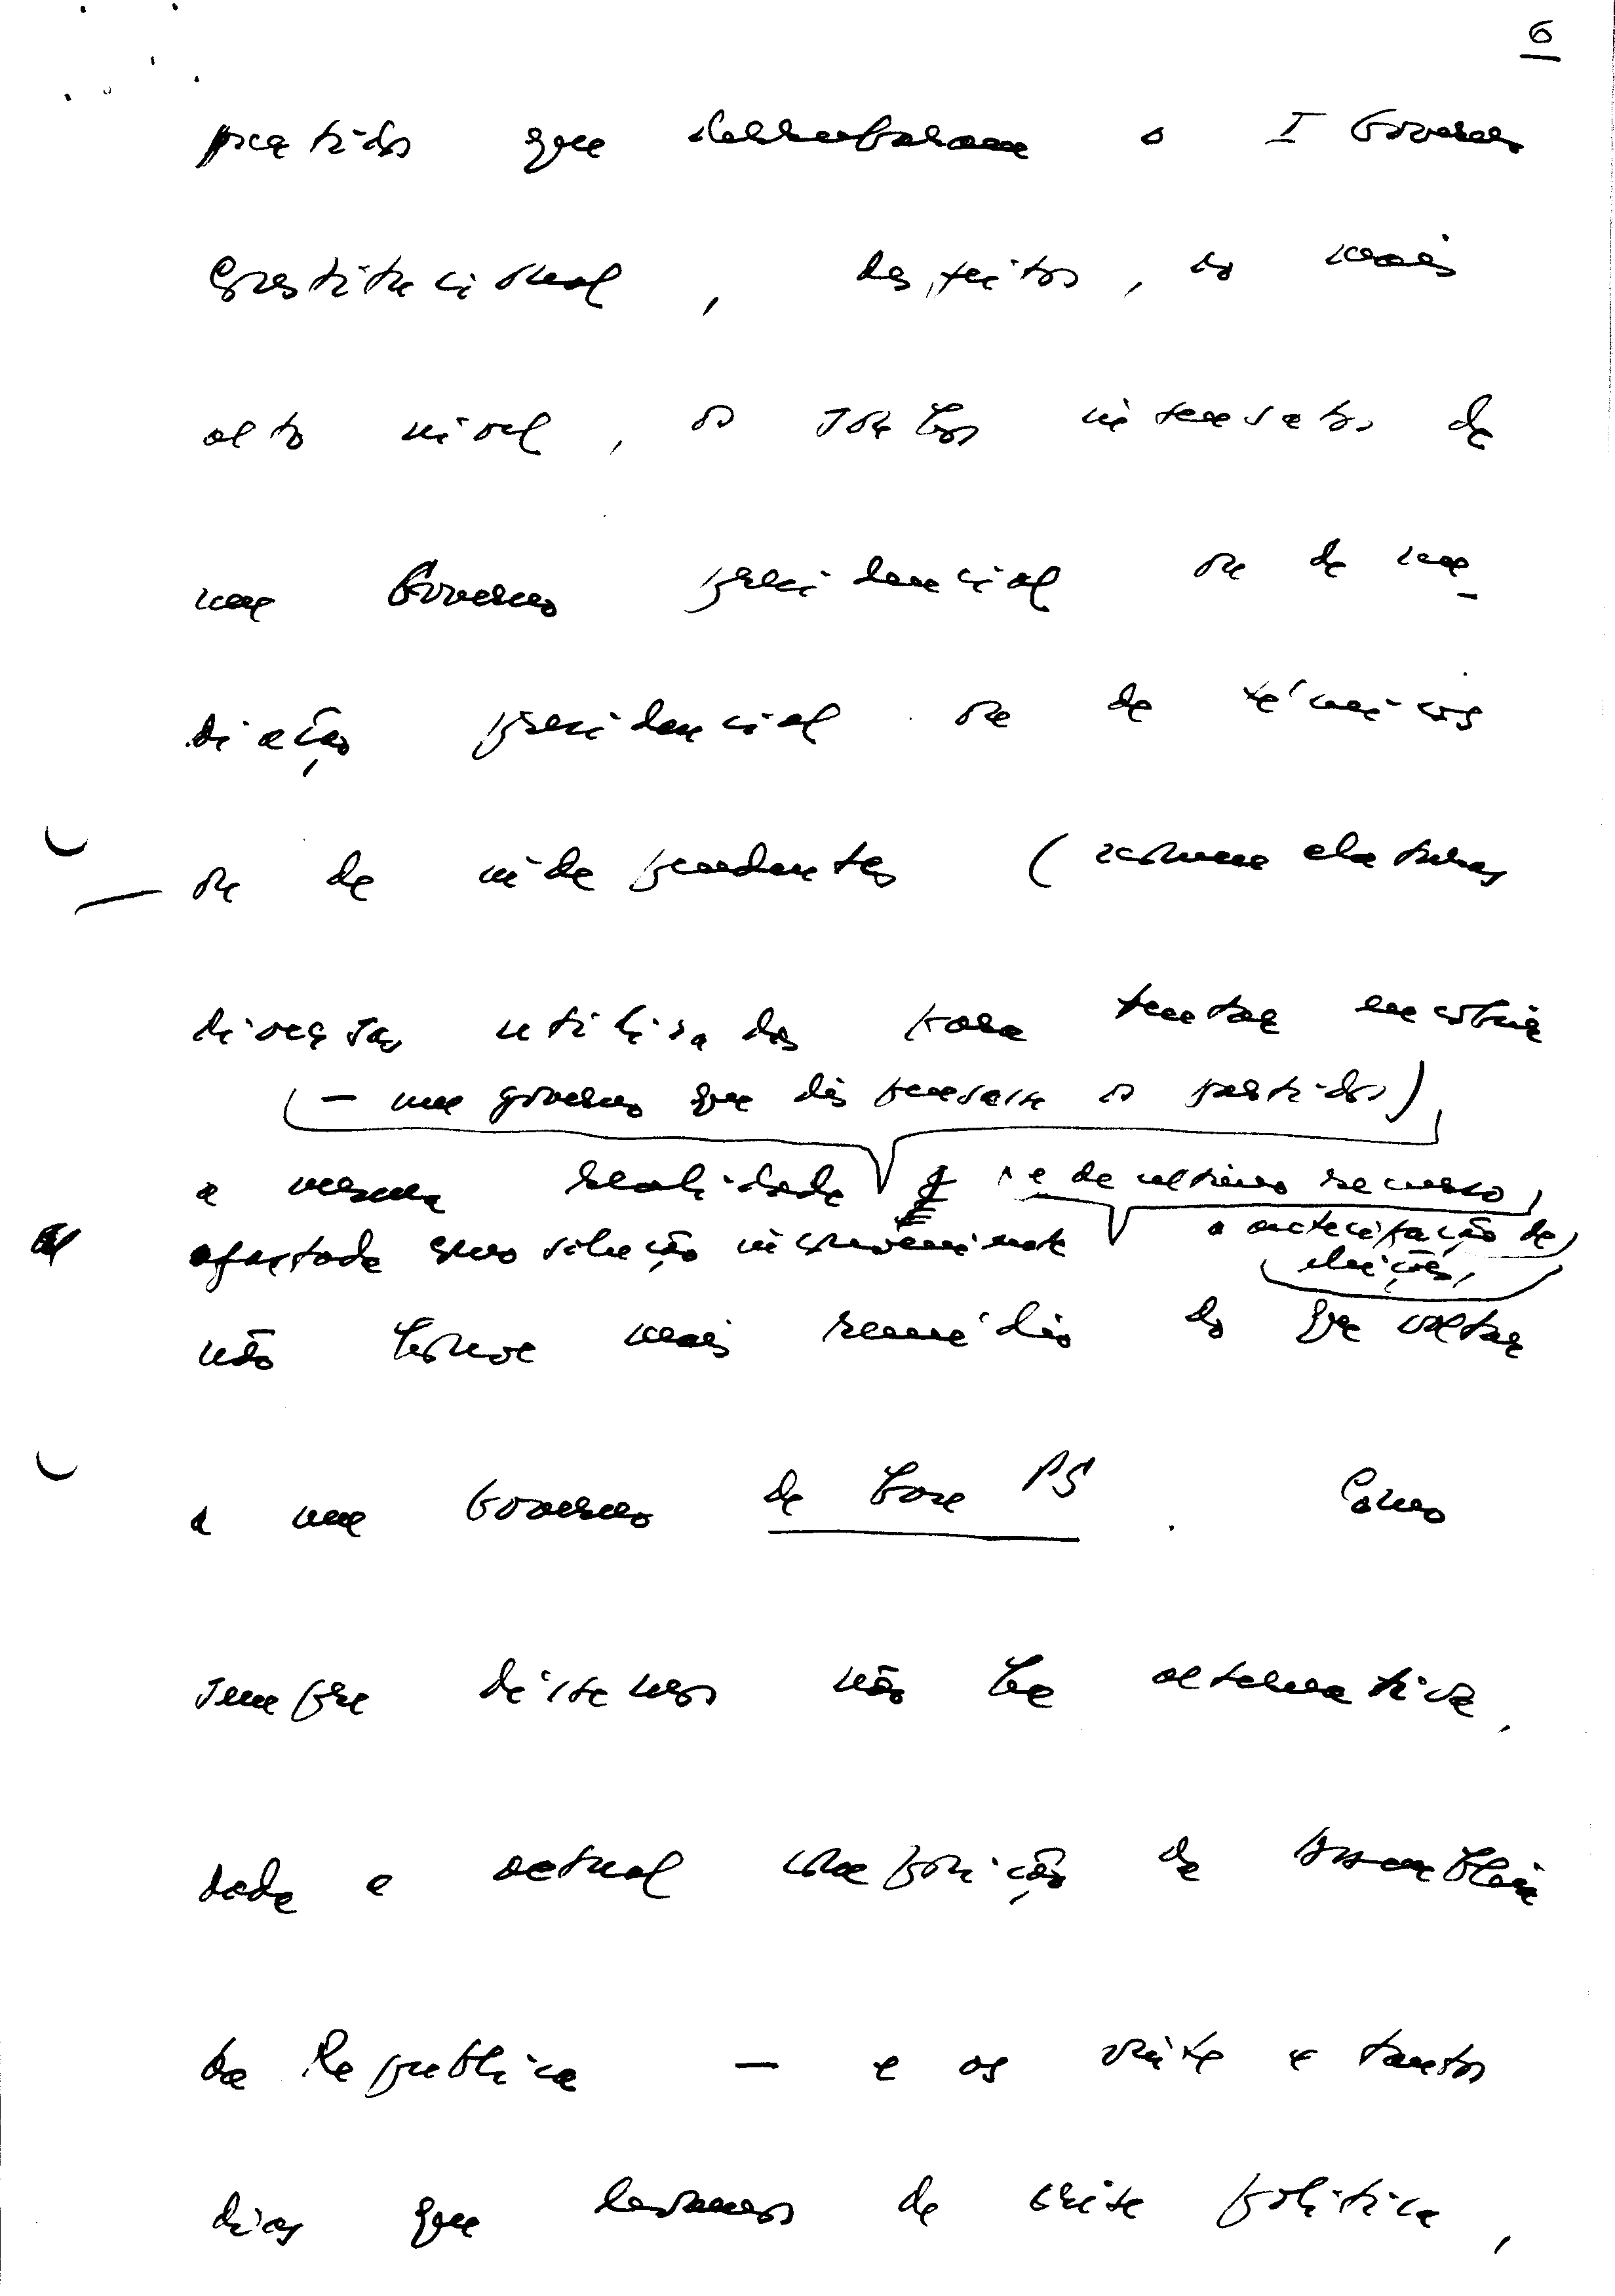 6
partidos que derrubaram o I Governo
Constitucional, desfeitos, ao mais
alto nível, os sonhos insensatos de
um Governo presidencial ou de ini-
diação presidencial ou de técnicos
ou de independentes (nomenclaturas
diversas utilisadas para tentar encobrir
(- um governo que dispensasse os partidos)
a mesma realidade e de ultimo recurso,
afastada como solução inconveniente a antecipação de
eleições,
não houve mais remédio do que voltar
a um Governo de base PS. Como
sempre dissemos não há alternativa,
dada a actual composição da Assembleia
da Republica — e os vinte e tantos
dias que levamos de crise politica,